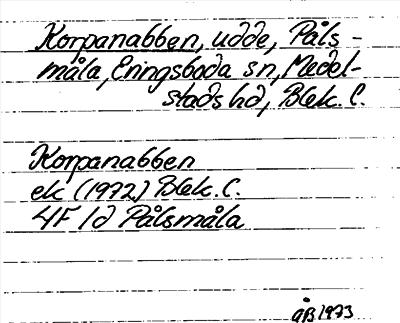 Korpanabben, udde, Påls-
måla, Eringsboda sn, Medel-
stads hd, Blek. l.
Korpanabben
ek (1972) Blek. l.
4F 1d Pålsmåla
ÅB 1973